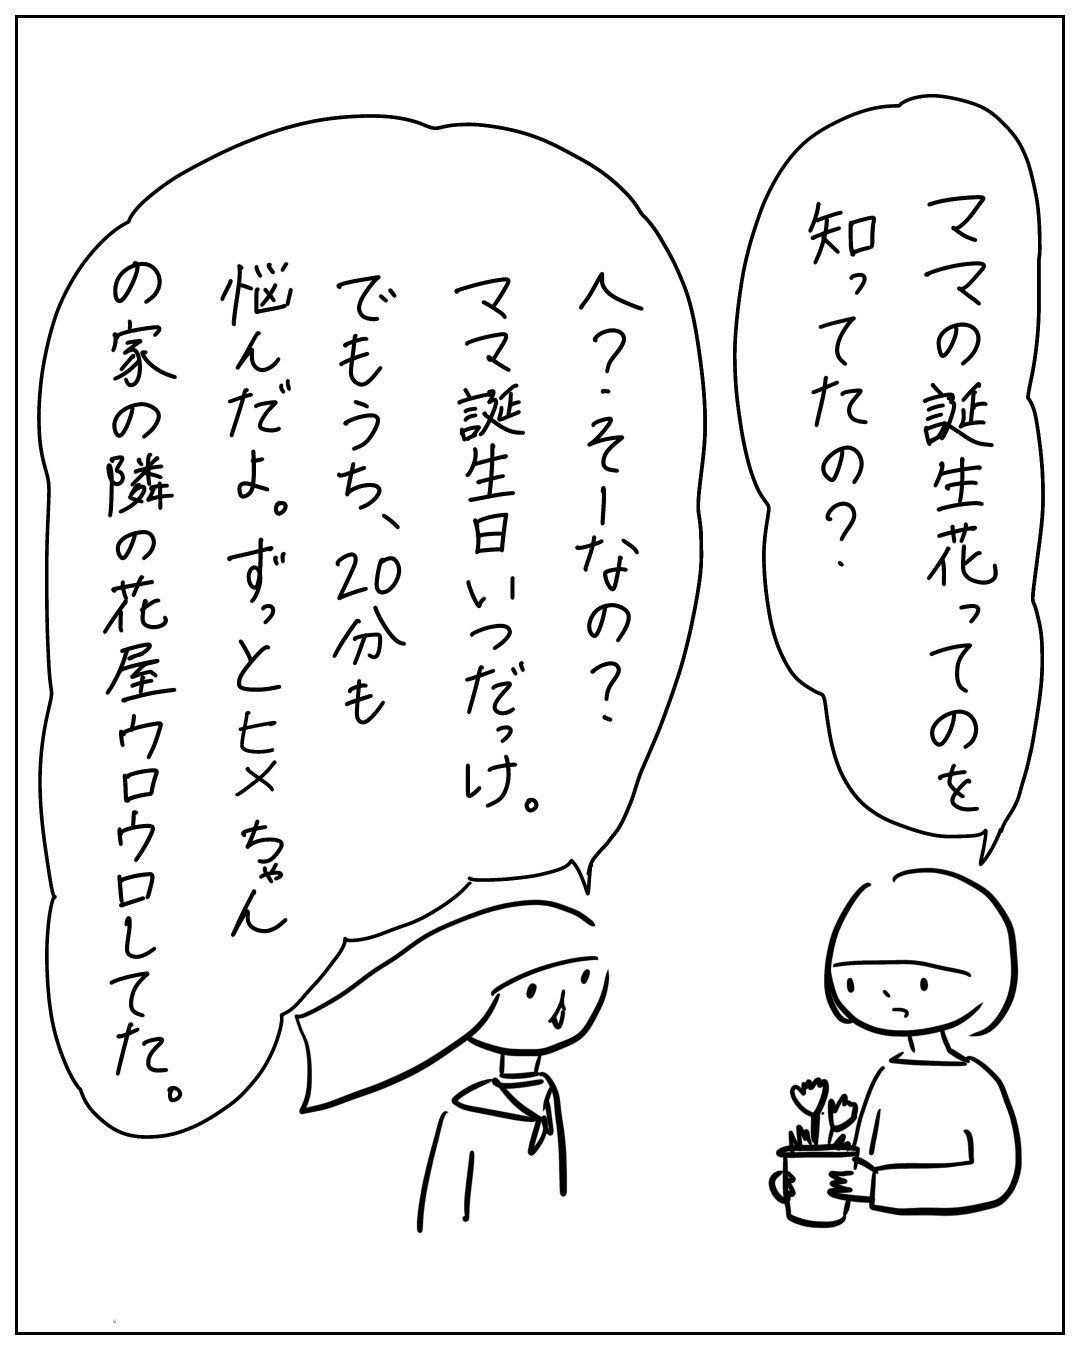 ママの誕生花ってのを
知ってたの?
へ?そーなの?
ママ誕生日いつだっけ。
でもうち、20分も
悩んだよ。ずっとヒメちゃん
の家の隣の花屋ウロウロしてた。